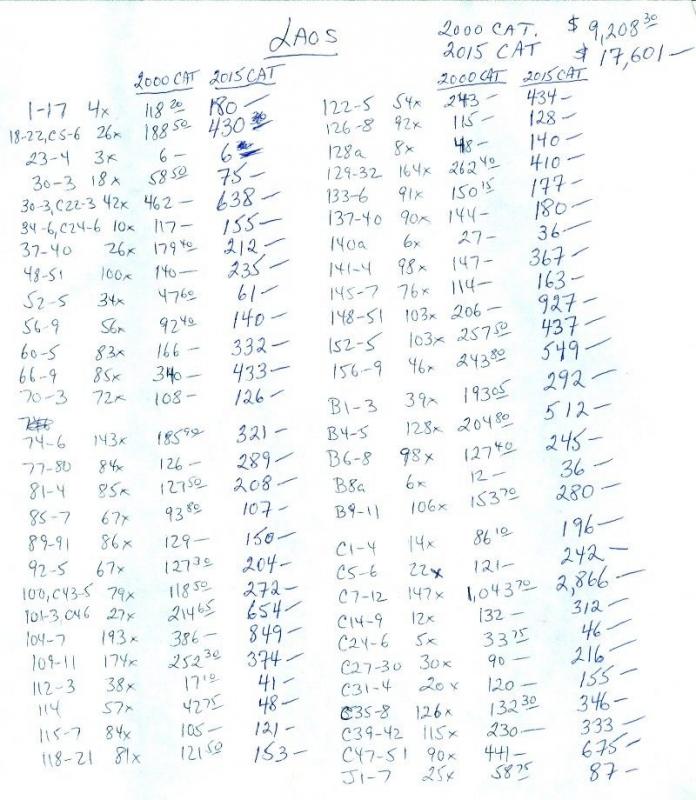 LAOS
2000 CAT. $ 9,208.30
2015 CAT $ 17,601 —
2000 CAT 2015 CAT
1-17 4x 118 20 180 —
18-22, C5-6 26x 188 50 430
23-4 3x 6 — 6
30-3 18x 58 50 75 —
30-3, C22-3 42x 462 — 638 —
34-6, C24-6 10x 117 — 155 —
37-40 26x 179 40 212 —
48-51 100x 140 — 235 —
52-5 34x 47 60 61 —
56-9 56x 92 40 140 —
60-5 83x 166 — 332 —
66-9 85x 340 — 433 —
70-3 72x 108 — 126 —
74-6 143x 185 90 321 —
77-80 84x 126 — 289 —
81-4 85x 127 50 208 —
85-7 67x 93 80 107 —
89-91 86x 129 — 150 —
92-5 67x 127 30 204 —
100, C43-5 79x 118 50 272 —
101-3, C46 27x 214 65 654 —
104-7 193x 386 — 849 —
109-11 174x 252 30 374 —
112-3 38x 17 10 41 —
114 57x 42 75 48 —
115-7 84x 105 — 121 —
118-21 81x 121 50 153 —
2000 CAT 2015 CAT
122-5 54x 243 — 434 —
126-8 92x 115 — 128 —
128a 8x 48 — 140 —
129-32 164x 262 40 410 —
133-6 91x 150 15 177 —
137-40 90x 144 — 180 —
140a 6x 27 — 36 —
141-4 98x 147 — 367 —
145-7 76x 114 — 163 —
148-51 103x 206 — 927 —
152-5 103x 257 50 437 —
156-9 46x 243 80 549 —
B1-3 39x 193 05 292 —
B4-5 128x 204 80 512 —
B6-8 98x 127 40 245 —
B8a 6x 12 — 36 —
B9-11 106x 153 70 280 —
C1-4 14x 86 10 196 —
C5-6 22x 121 — 242 —
C7-12 147x 1,043 70 2,866 —
C14-9 12x 132 — 312 —
C24-6 5x 33 75 46 —
C27-30 30x 90 — 216 —
C31-4 20x 120 — 155 —
C35-8 126x 132 30 346 —
C39-42 115x 230 — 333 —
C47-51 90x 441 — 675 —
J1-7 25x 58 75 87 —